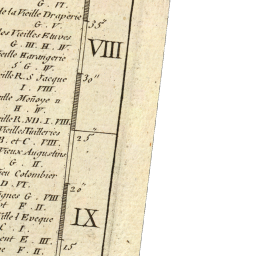 G. VI.
de la Vieille Draperie
G. V.
les Vieilles Etuves
G. III. H. IV.
Vieille Harangerie
5 G. IV.
Vieille R. S. Jacque
I. VIII.
Vieille Monoye n
H. IV.
Vieille R. N.D. I. VIII.
Vieilles Tuilleries
B. et C. VIII.
Vieux Augustins
G. II.
Colombier
D. VI.
Vignes G. VIII
F. II.
Ville l'Eveque
C. I.
E. III.
F. II.
35"
VIII
30"
25"
20"
IX
15"